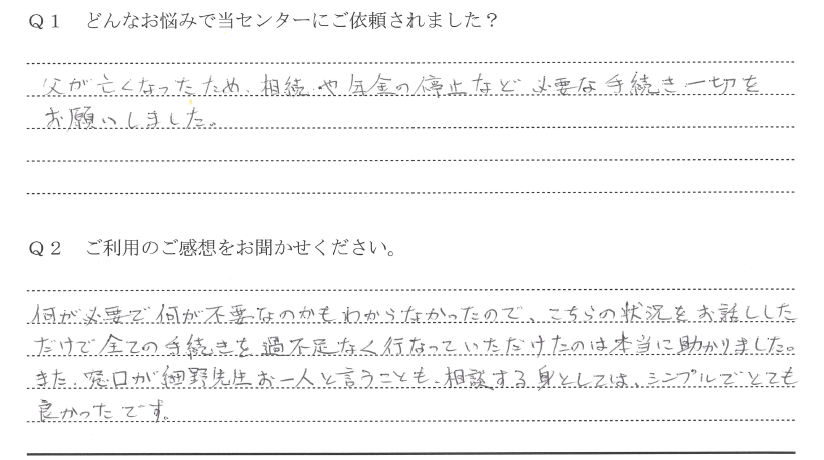 Ｑ１　どんなお悩みで当センターにご依頼されました？
父が亡くなったため、相続や年金の停止など必要な手続き一切を
お願いしました。
Ｑ２　ご利用のご感想をお聞かせください。
何が必要で何が不要なのかもわからなかったので、こちらの状況をお話しした
だけで全ての手続きを過不足なく行なっていただけたのは本当に助かりました。
また、窓口が細野先生お一人と言うことも、相談する身としては、シンプルでとても
良かったです。